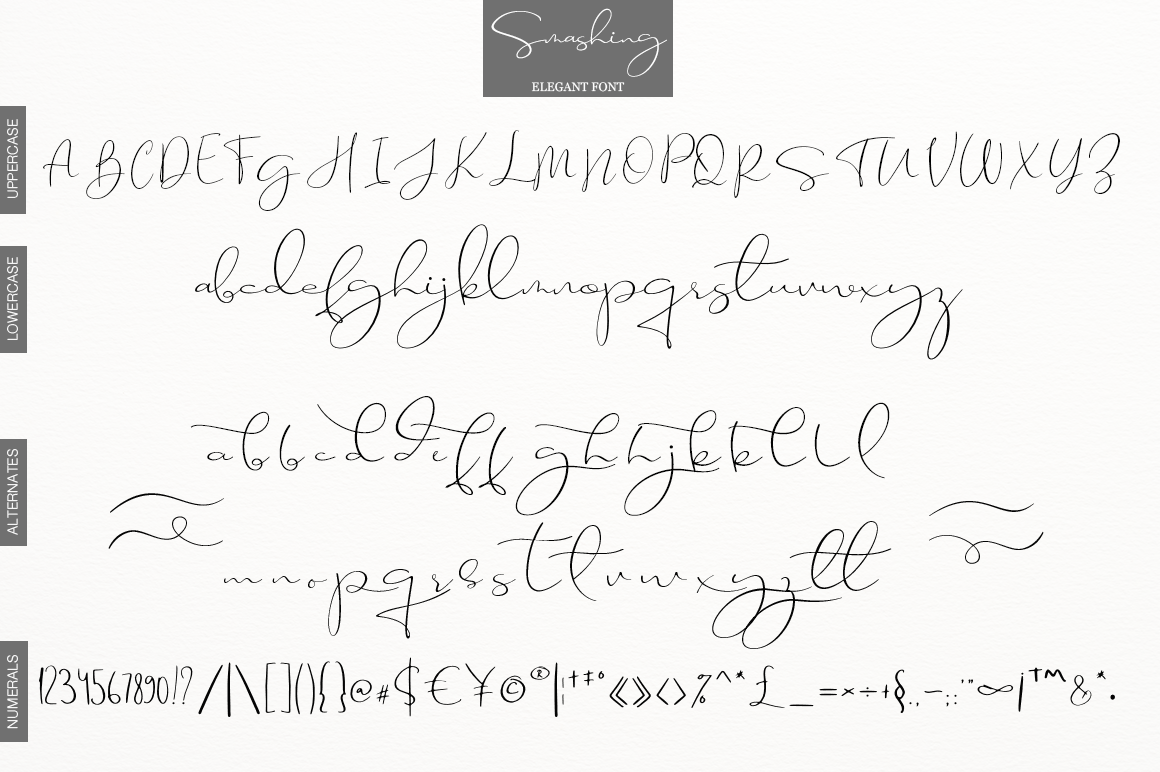 Smashing
ELEGANT FONT
UPPERCASE
A B C D E F g H I J K L M n O P Q R S T U V W X Y Z
LOWERCASE
abcdefghijklmnopqrstuvwxyz
ALTERNATES
a b b c d d e f f g h h j k k l l l
m n o p q r s s t t v w x y z t t
NUMERALS
1234567890!? / | \ [ ] ( ) { } @ # $ € ¥ © ® | ¦ † ‡ ° « » < > % ^ * £ _ = × ÷ + § . , ~ - ; : ' " ∞ ¡ ™ & * .